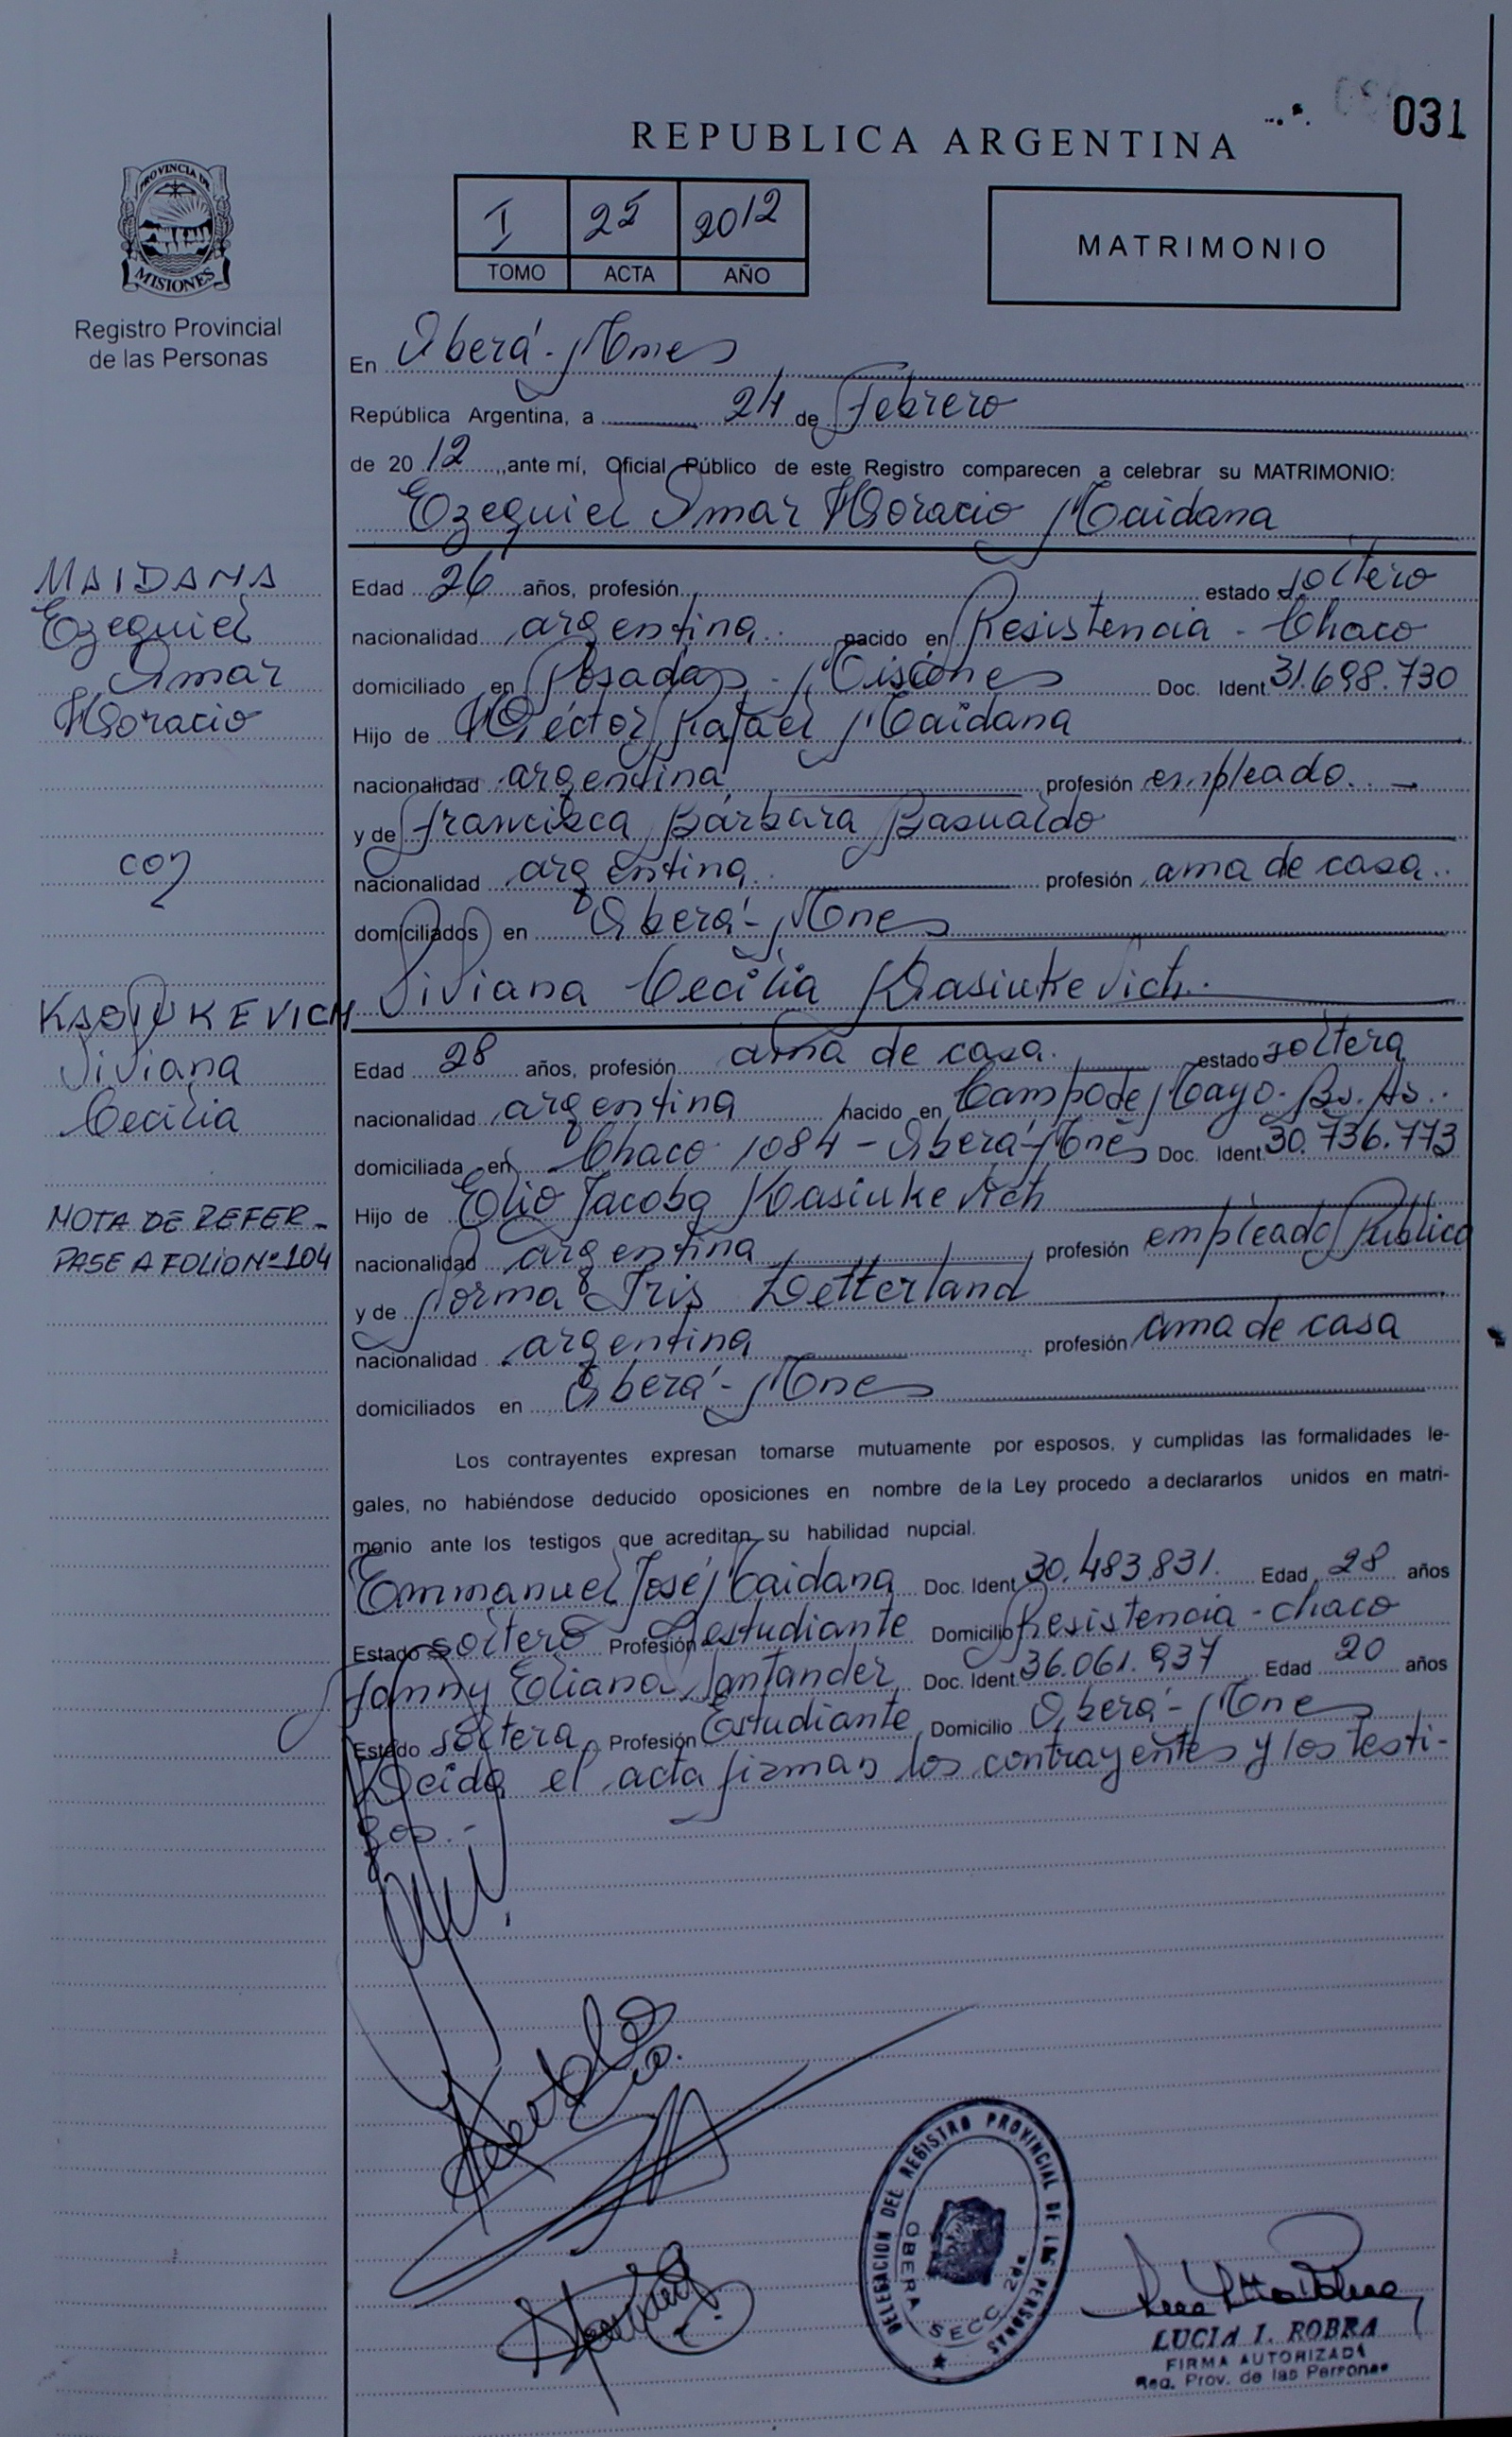 031
REPUBLICA ARGENTINA
PROVINCIA DE
MISIONES
Registro Provincial
de las Personas
I 25 2012
TOMO ACTA AÑO
MATRIMONIO
En Oberá - Mnes
República Argentina, a 24 de Febrero
de 20 12 , ante mí, Oficial Público de este Registro comparecen a celebrar su MATRIMONIO:
Ezequiel Omar Horacio Maidana
MAIDANA
Ezequiel
Omar
Horacio
con
KASIUKEVICH
Viviana
Cecilia
NOTA DE REFER -
PASE A FOLIO Nº 104
Edad 26 años, profesión estado soltero
nacionalidad argentina nacido en Resistencia - Chaco
domiciliado en Posadas - Misiones Doc. Ident. 31.698.730
Hijo de Héctor Rafael Maidana
nacionalidad argentina profesión empleado
y de Francisca Bárbara Basualdo
nacionalidad argentina profesión ama de casa
domiciliados en Oberá - Mnes
Viviana Cecilia Kasiukevich
Edad 28 años, profesión ama de casa estado soltera
nacionalidad argentina nacido en Campo de Mayo - Bs. As.
domiciliada en Chaco 1084 - Oberá - Mnes Doc. Ident. 30.736.773
Hijo de Elio Jacobo Kasiukevich
nacionalidad argentina profesión empleado Público
y de Norma Iris Zetterlund
nacionalidad argentina profesión ama de casa
domiciliados en Oberá - Mnes
Los contrayentes expresan tomarse mutuamente por esposos, y cumplidas las formalidades le-
gales, no habiéndose deducido oposiciones en nombre de la Ley procedo a declararlos unidos en matri-
monio ante los testigos que acreditan su habilidad nupcial.
Emmanuel José Maidana Doc. Ident. 30.483.831. Edad 28 años
Estado soltero Profesión estudiante Domicilio Resistencia - Chaco
Fanny Eliana Santander Doc. Ident. 36.061.937 Edad 20 años
Estado soltera Profesión Estudiante Domicilio Oberá - Mnes
Leida el acta firman los contrayentes y los testi-
gos.-
DELEGACION DEL REGISTRO PROVINCIAL DE LAS PERSONAS
OBERA SECC. 2da.
LUCIA I. ROBRA
FIRMA AUTORIZADA
Reg. Prov. de las Personas